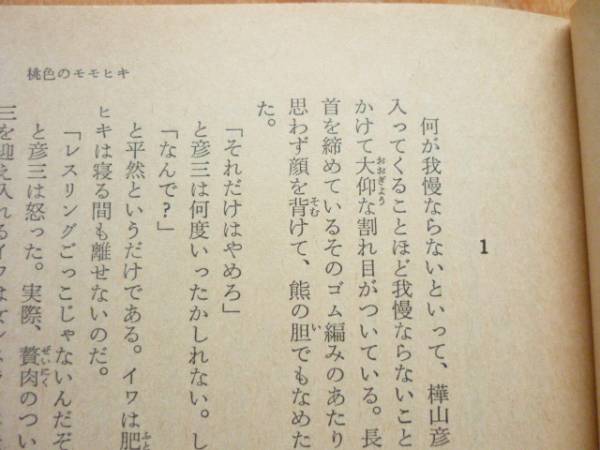 桃色のモモヒキ
1
何が我慢ならないといって、樺山彦
入ってくることほど我慢ならないこと
かけて大仰な割れ目がついている。長
首を締めているそのゴム編みのあたり
思わず顔を背けて、熊の胆でもなめた
た。
「それだけはやめろ」
と彦三は何度いったかしれない。し
「なんで?」
と平然というだけである。イワは肥
ヒキは寝る間も離せないのだ。
「レスリングごっこじゃないんだぞ
と彦三は怒った。実際、贅肉のつい
三を迎え入れるイワは女レスラ